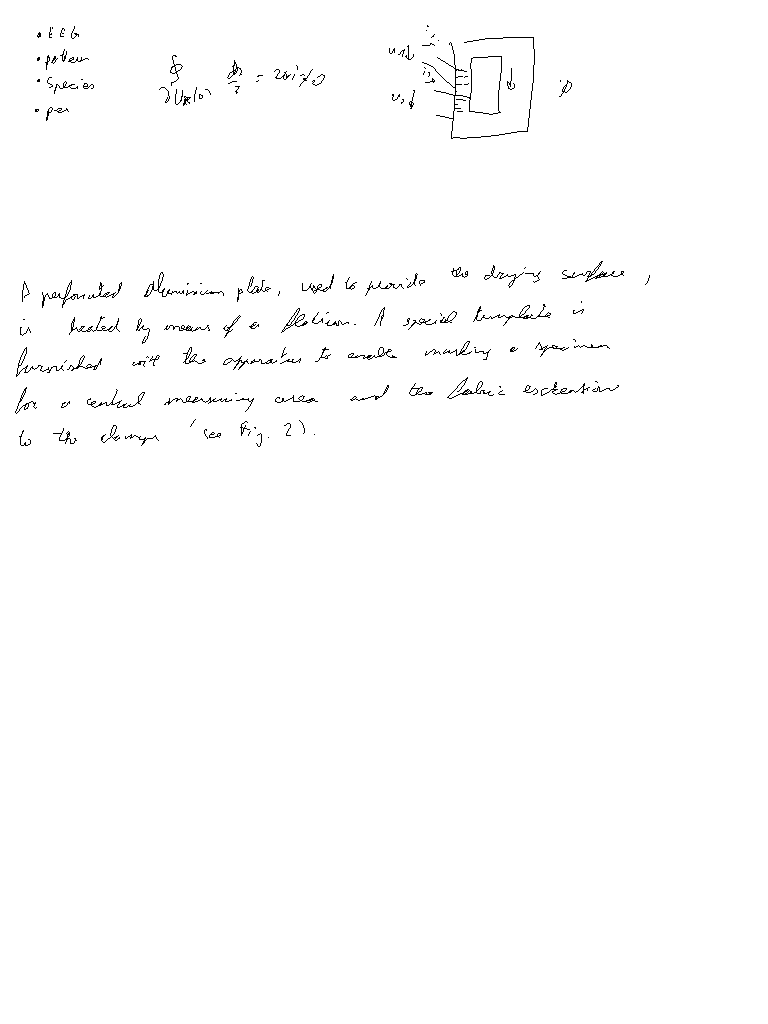 • EEG
• pattern
• Species
• per
∮ ∂U_R(0) dz/z = 2πi ≠ 0
i₁
u₁↓
i₂
u₂↓
φ
A perforated Aluminium plate, used to provide the drying surface,
is heated by means of a flatiron. A special template is
furnished with the apparatus to enable marking a specimen
for a central measuring area and the fabric extension
to the clamps (see Fig. 2).